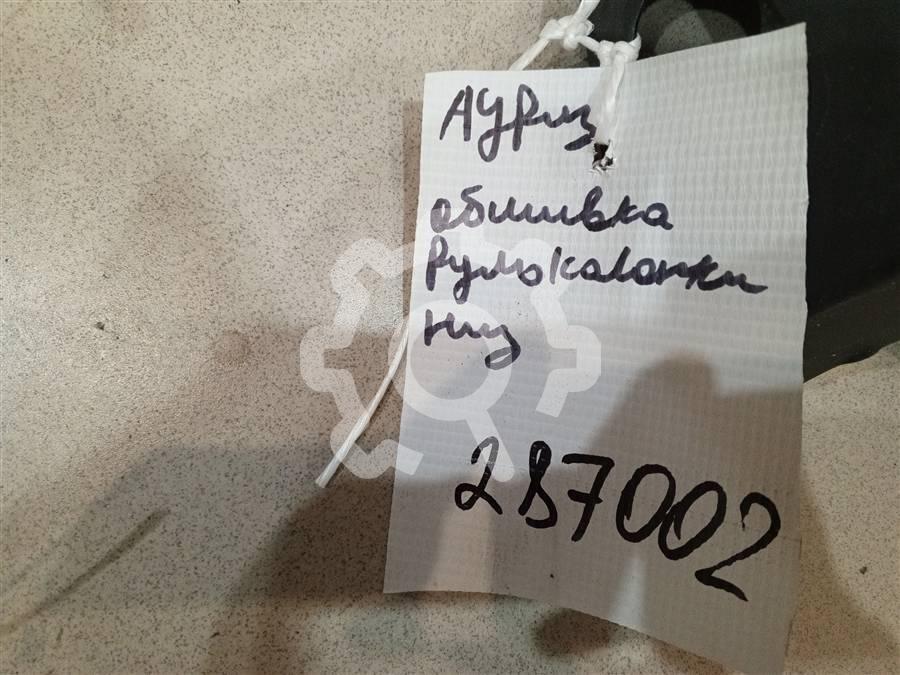 Ауриз
обшивка
Рулькалонки
низ
287002